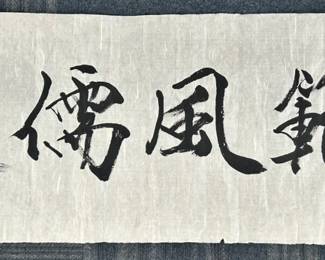 儒風範